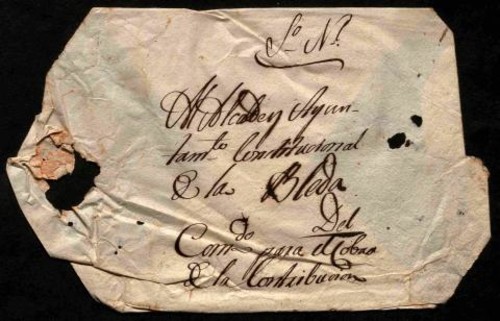 So. No.
Al Alcalde y Ayun-
tamto. Constitucional
de la Bleda.
Del
Comdo. para el Cobro
de la Contribucion